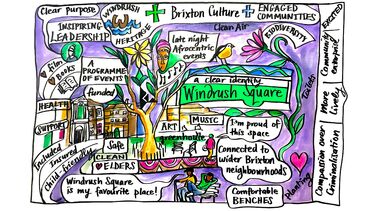 Clear purpose
WINDRUSH
HERITAGE
Brixton Culture
ENGAGED
COMMUNITIES
INSPIRING
LEADERSHIP
late night
Afrocentric
events
Clean Air
BIODIVERSITY
film
books
A
PROGRAMME
OF EVENTS
funded
a clear identity
Windrush Square
HEALTH
SUPPORT
Included
Insured
child-friendly
ART
MUSIC
greenhouse
Safe
CLEAN
ELDERS
I'm proud of
this space
Connected to
wider Brixton
neighbourhoods
Windrush Square
is my favourite place!
Comfortable
BENCHES
Planting
Toilets
Community
More
Lively
Compassion over
Criminalisation